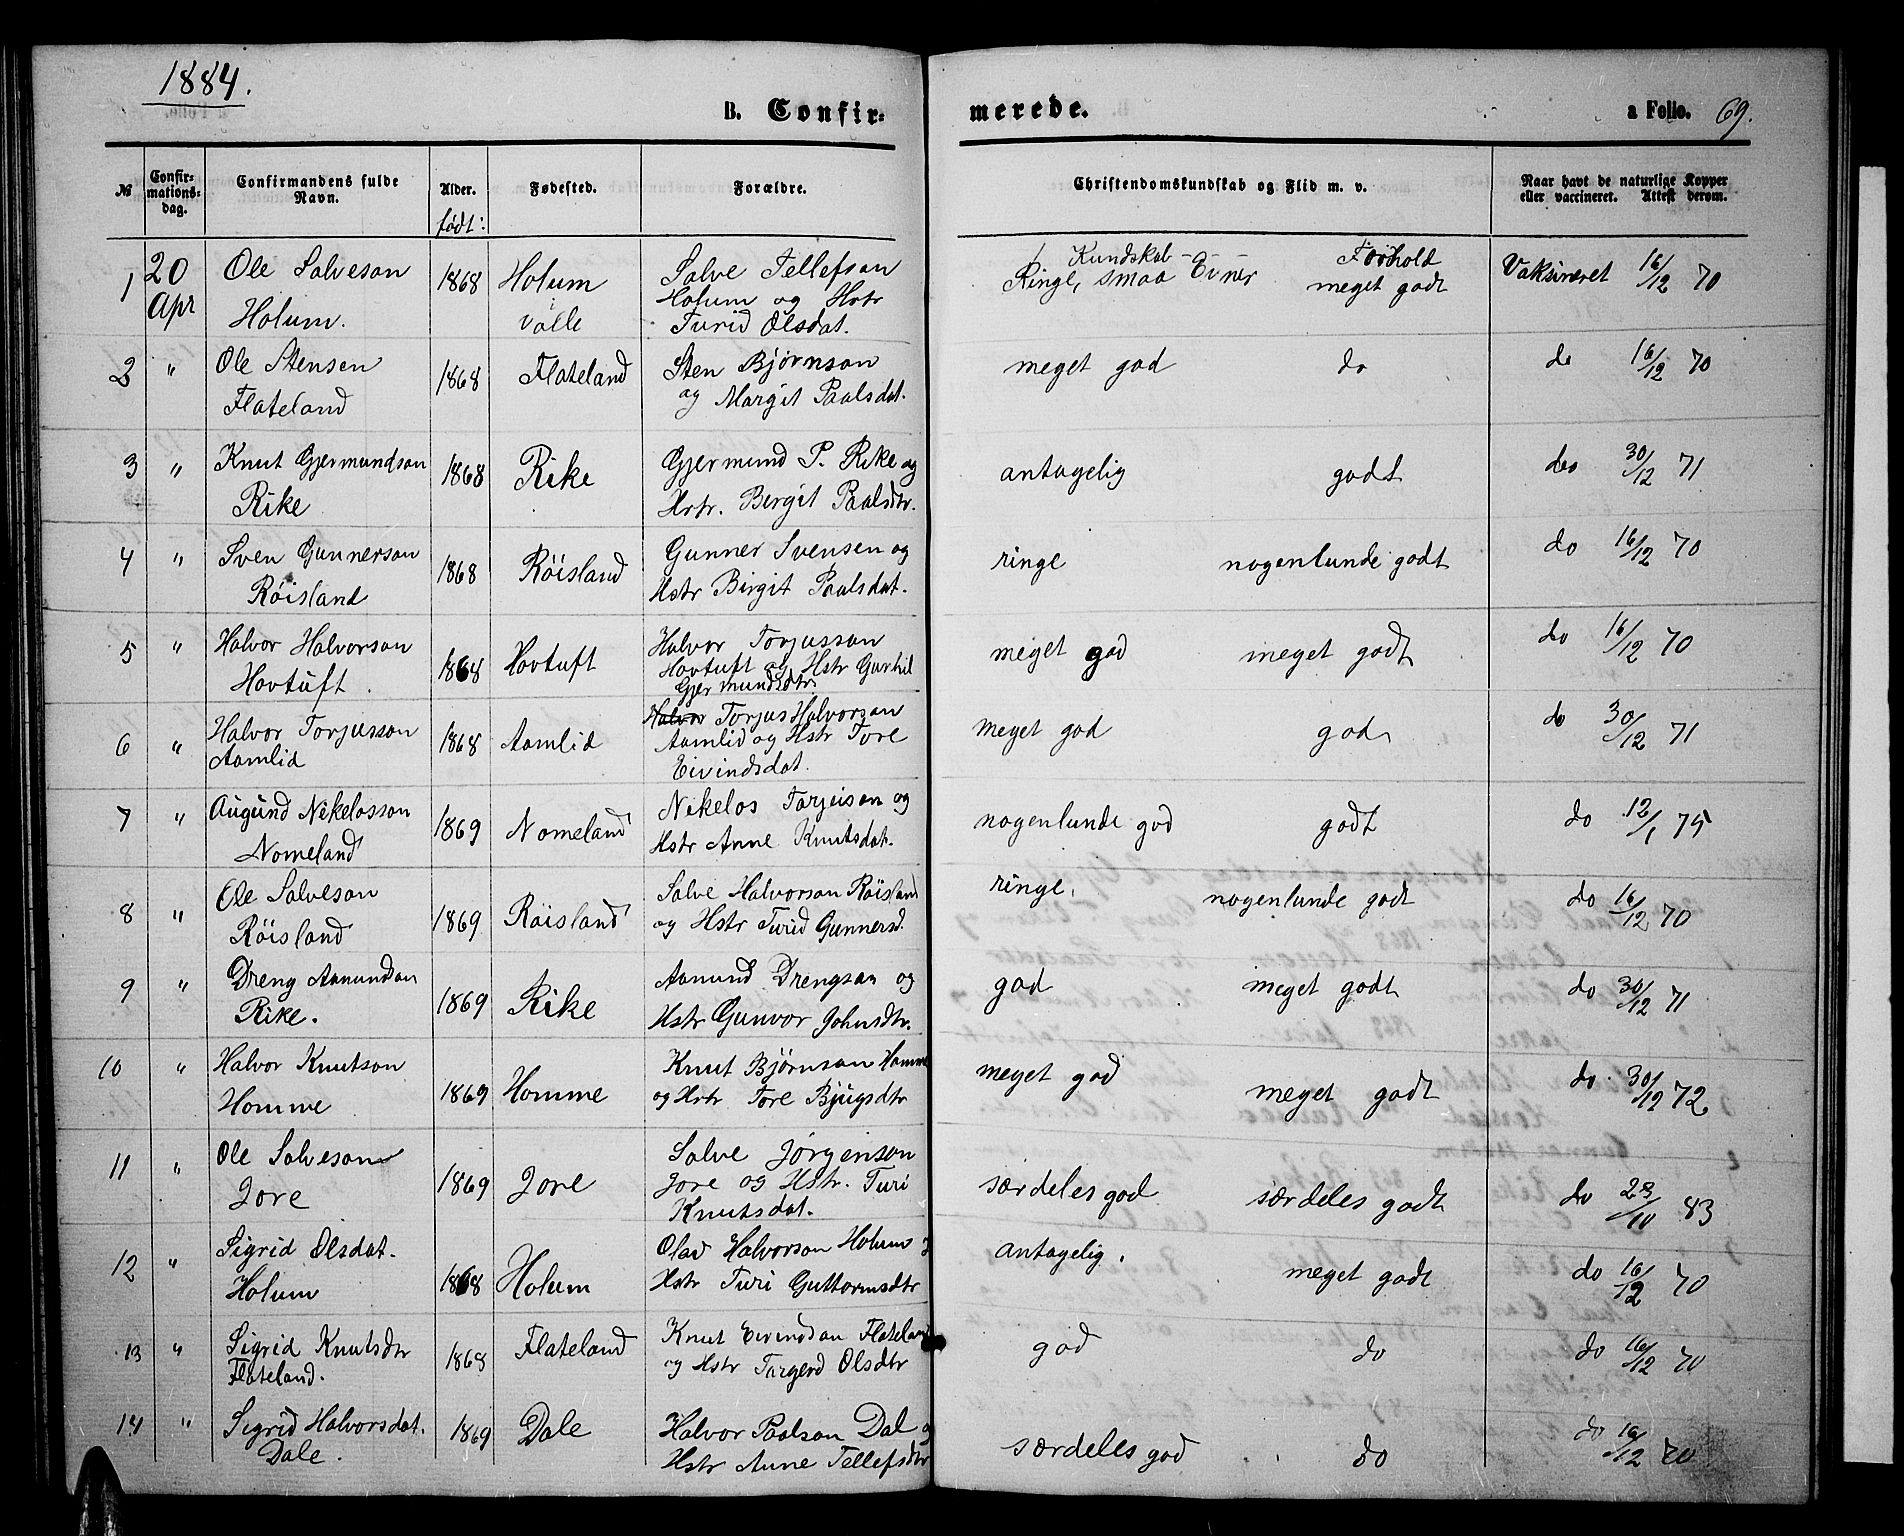 1884.
B. Confir-
merede.
a Folio. 69.
№
Confir-
mations-
dag.
Confirmandens fulde
Navn.
Alder.
født:
Fødested.
Forældre.
Christendomskundskab og Flid m. v.
Naar havt de naturlige Kopper
eller vaccineret. Attest derom.
1 20 Apr
Ole Salveson
Holum.
1868
Holum
i Valle
Salve Tellefson
Holum og Hstr
Turid Olsdat.
Kundskab - Forhold
Ringe, smaa Evner meget godt
Vaksineret 16/12 70
2 "
Ole Stensen
Flateland
1868
Flateland
Sten Bjørnson
og Margit Paalsdat.
meget god do
do 16/12 70
3 "
Knut Gjermundson
Rike
1868
Rike
Gjermund P. Rike og
Hstr. Bergit Paalsdtr.
antagelig godt
do 30/12 71
4 "
Sven Gunnerson
Røisland
1868
Røisland
Gunner Svensen og
Hstr Birgit Paalsdat.
ringe nogenlunde godt
do 16/12 70
5 "
Halvor Halvorson
Hovtuft.
1868
Hovtuft
Halvor Torjusson
Hovtuft og Hstr Gunhil
Gjermundsdtr.
meget god meget godt
do 16/12 70
6 "
Halvor Torjusson
Aamlid
1868
Aamlid
Halvor Torjus Halvorson
Aamlid og Hstr Tore
Eivindsdat.
meget god god
do 30/12 71
7 "
Augund Nikelosson
Nomeland
1869
Nomeland
Nikelos Torjeison og
Hstr Anne Knutsdat.
nogenlunde god godt
do 12/1 75
8 "
Ole Salveson
Røisland
1869
Røisland
Salve Halvorson Røisland
og Hstr Turid Gunnersd.
ringe, nogenlunde godt
do 16/12 70
9 "
Dreng Aamundson
Rike.
1869
Rike
Aamund Drengson og
Hstr Gunvor Johnsdtr.
god meget godt
do 30/12 71
10 "
Halvor Knutson
Homme
1869
Homme
Knut Bjørnson Homme
og Hstr Tore Bjugsdtr
meget god meget godt
do 30/12 72
11 "
Ole Salveson
Jore
1869
Jore
Salve Jørgenson
Jore og Hstr. Turi
Knutsdat.
særdeles god særdeles godt
do 28/10 83
12 "
Sigrid Olsdat.
Holum
1868
Holum
Olav Halvorson Holum
Hstr Turi Guttormsdtr
antagelig. meget godt
do 16/12 70
13 "
Sigrid Knutsdtr
Flateland.
1868
Flateland
Knut Eivindson Flateland
og Hstr Torgerd Olsdtr
god do
do 16/12 70
14 "
Sigrid Halvorsdat.
Dale.
1869
Dale
Halvor Paalson Dal og
Hstr Anne Tellefsdtr
særdeles god do
do 16/12 70